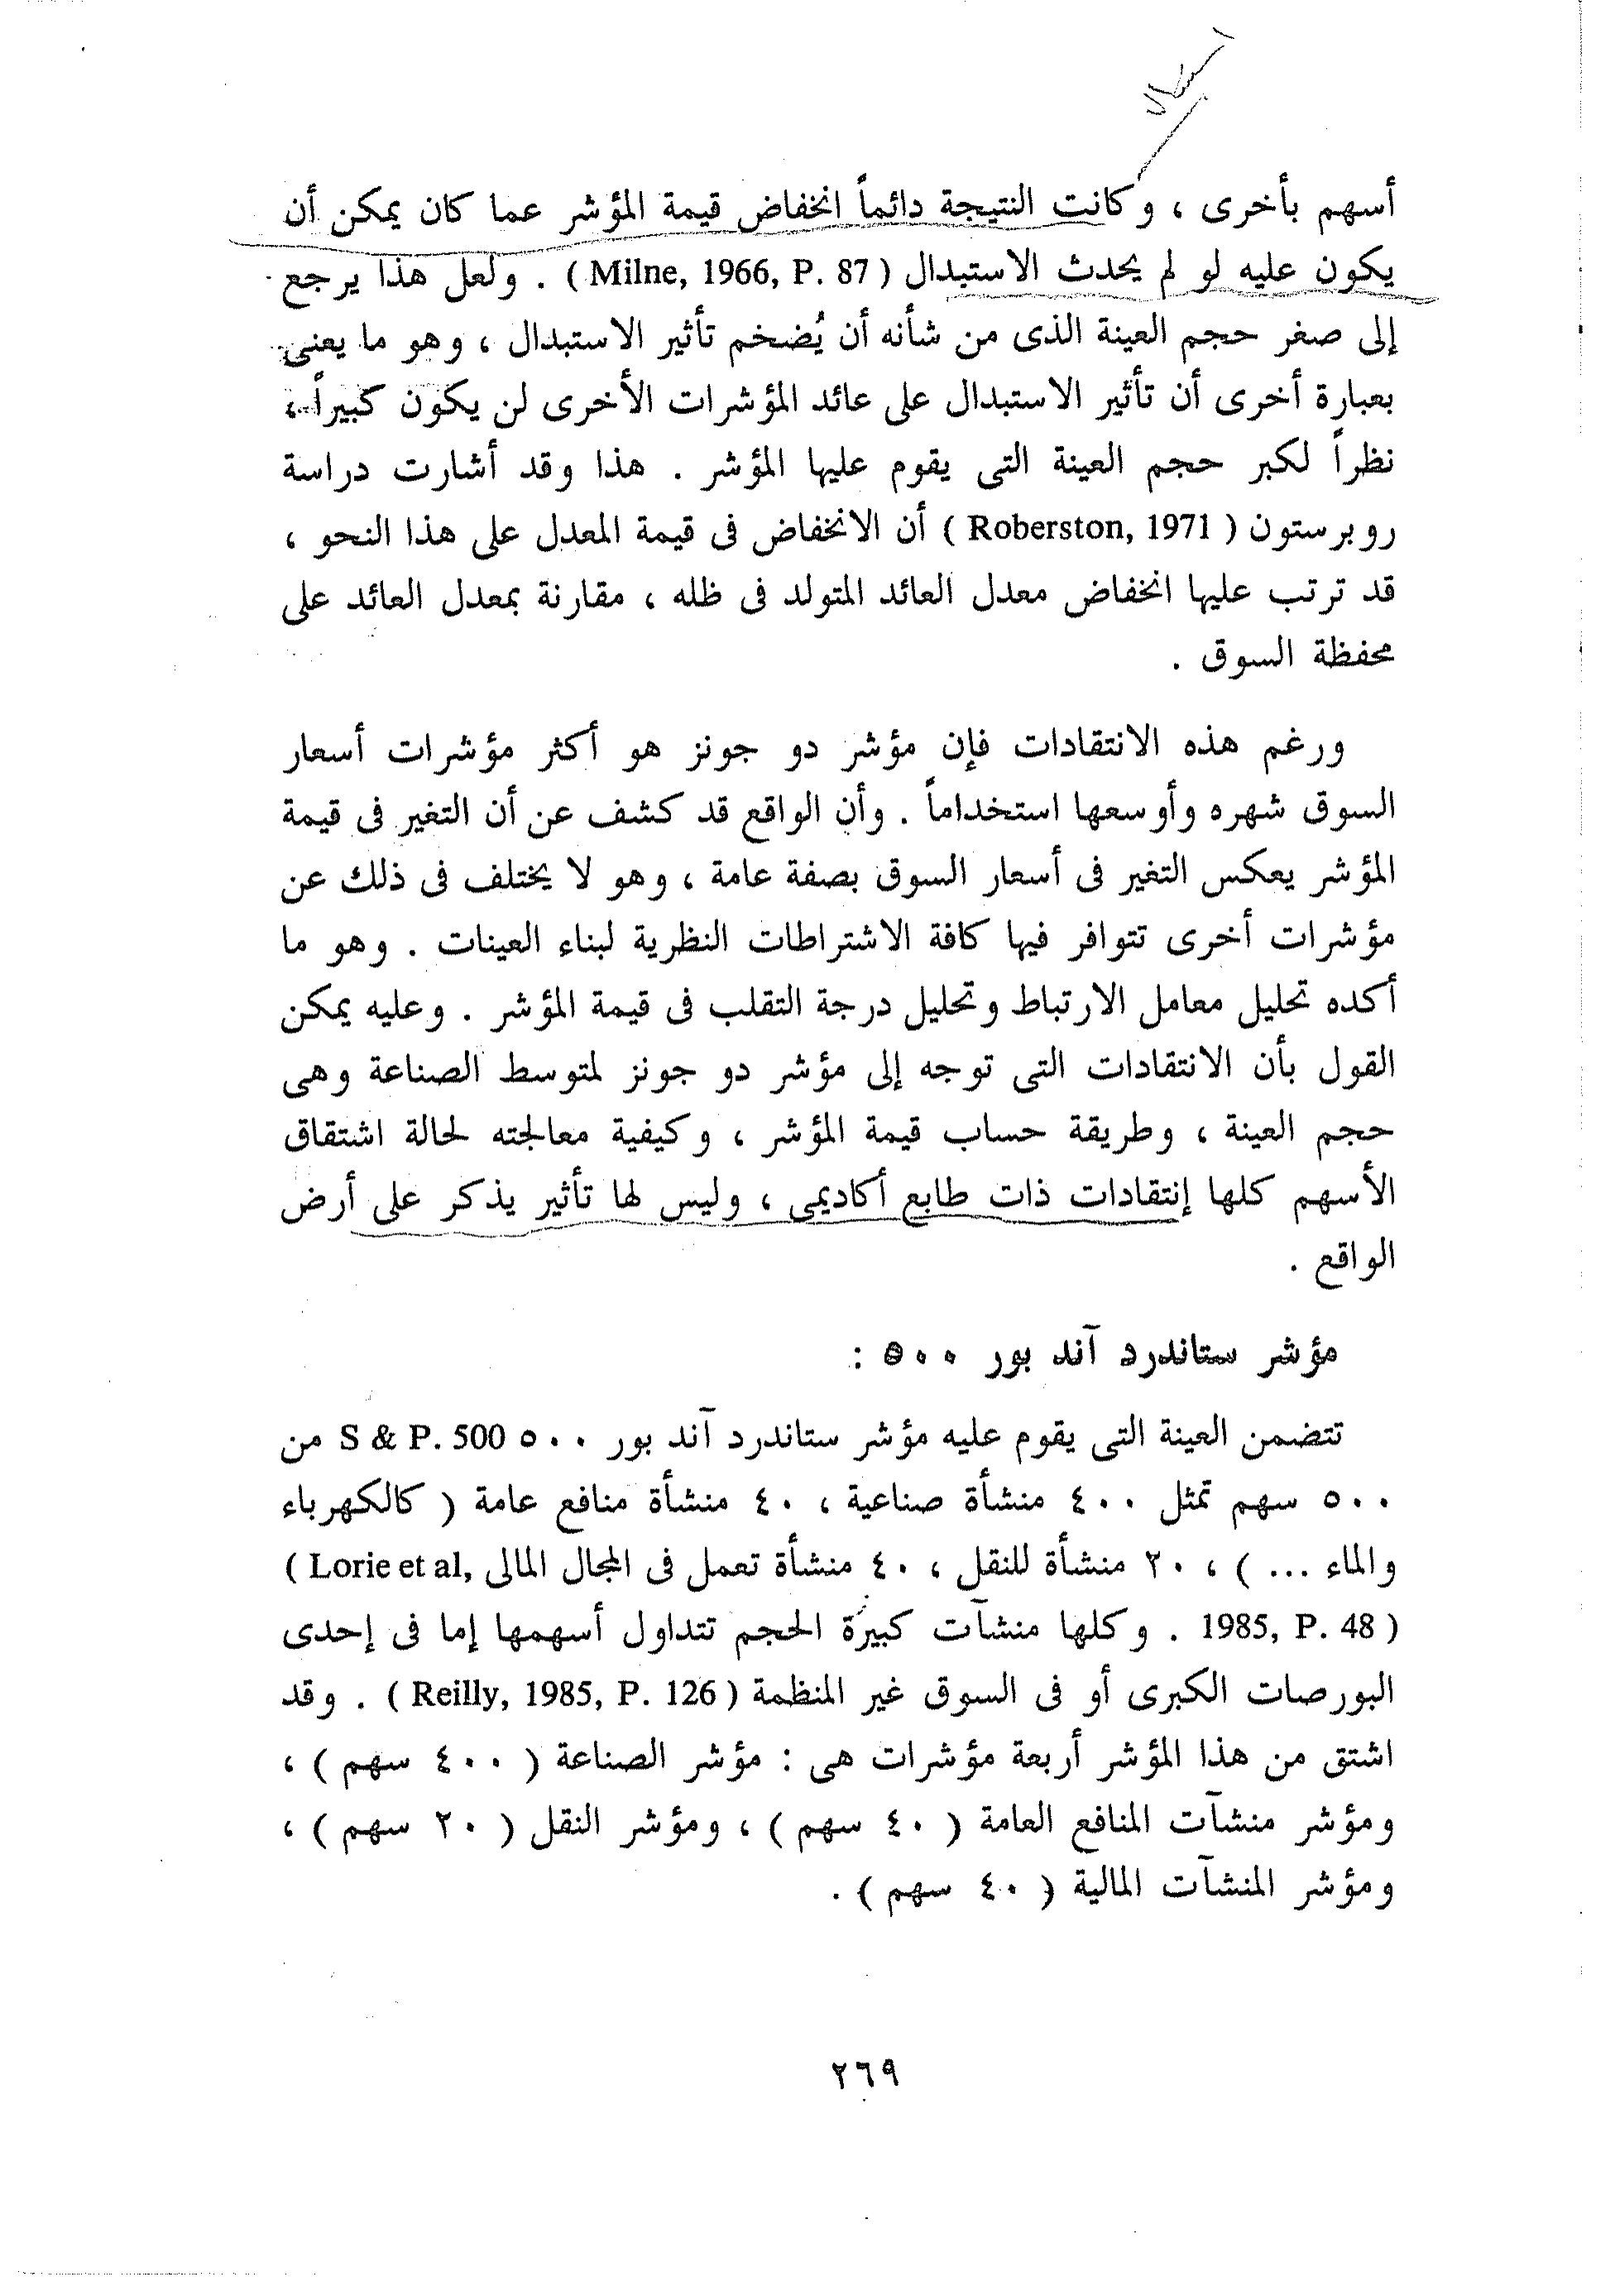 أسهم بأخرى ، وكانت النتيجة دائماً انخفاض قيمة المؤشر عما كان يمكن أن
يكون عليه لو لم يحدث الاستبدال ( Milne, 1966, P. 87 ) . ولعل هذا يرجع
إلى صغر حجم العينة الذى من شأنه أن يُضخم تأثير الاستبدال ، وهو ما يعنى
بعبارة أخرى أن تأثير الاستبدال على عائد المؤشرات الأخرى لن يكون كبيراً ،
نظراً لكبر حجم العينة التى يقوم عليها المؤشر . هذا وقد أشارت دراسة
روبرستون ( Roberston, 1971 ) أن الانخفاض فى قيمة المعدل على هذا النحو ،
قد ترتب عليها انخفاض معدل العائد المتولد فى ظله ، مقارنة بمعدل العائد على
محفظة السوق .
ورغم هذه الانتقادات فإن مؤشر دو جونز هو أكثر مؤشرات أسعار
السوق شهره وأوسعها استخداماً . وأن الواقع قد كشف عن أن التغير فى قيمة
المؤشر يعكس التغير فى أسعار السوق بصفة عامة ، وهو لا يختلف فى ذلك عن
مؤشرات أخرى تتوافر فيها كافة الاشتراطات النظرية لبناء العينات . وهو ما
أكده تحليل معامل الارتباط وتحليل درجة التقلب فى قيمة المؤشر . وعليه يمكن
القول بأن الانتقادات التى توجه إلى مؤشر دو جونز لمتوسط الصناعة وهى
حجم العينة ، وطريقة حساب قيمة المؤشر ، وكيفية معالجته لحالة اشتقاق
الأسهم كلها إنتقادات ذات طابع أكاديمى ، وليس لها تأثير يذكر على أرض
الواقع .
مؤشر ستاندرد آند بور ٥٠٠ :
تتضمن العينة التى يقوم عليه مؤشر ستاندرد آند بور ٥٠٠ S & P. 500 من
٥٠٠ سهم تمثل ٤٠٠ منشأة صناعية ، ٤٠ منشأة منافع عامة ( كالكهرباء
والماء ... ) ، ٢٠ منشأة للنقل ، ٤٠ منشأة تعمل فى المجال المالى ( Lorie et al,
1985, P. 48 ) . وكلها منشآت كبيرة الحجم تتداول أسهمها إما فى إحدى
البورصات الكبرى أو فى السوق غير المنظمة ( Reilly, 1985, P. 126 ) . وقد
اشتق من هذا المؤشر أربعة مؤشرات هى : مؤشر الصناعة ( ٤٠٠ سهم ) ،
ومؤشر منشآت المنافع العامة ( ٤٠ سهم ) ، ومؤشر النقل ( ٢٠ سهم ) ،
ومؤشر المنشآت المالية ( ٤٠ سهم ) .
٢٦٩